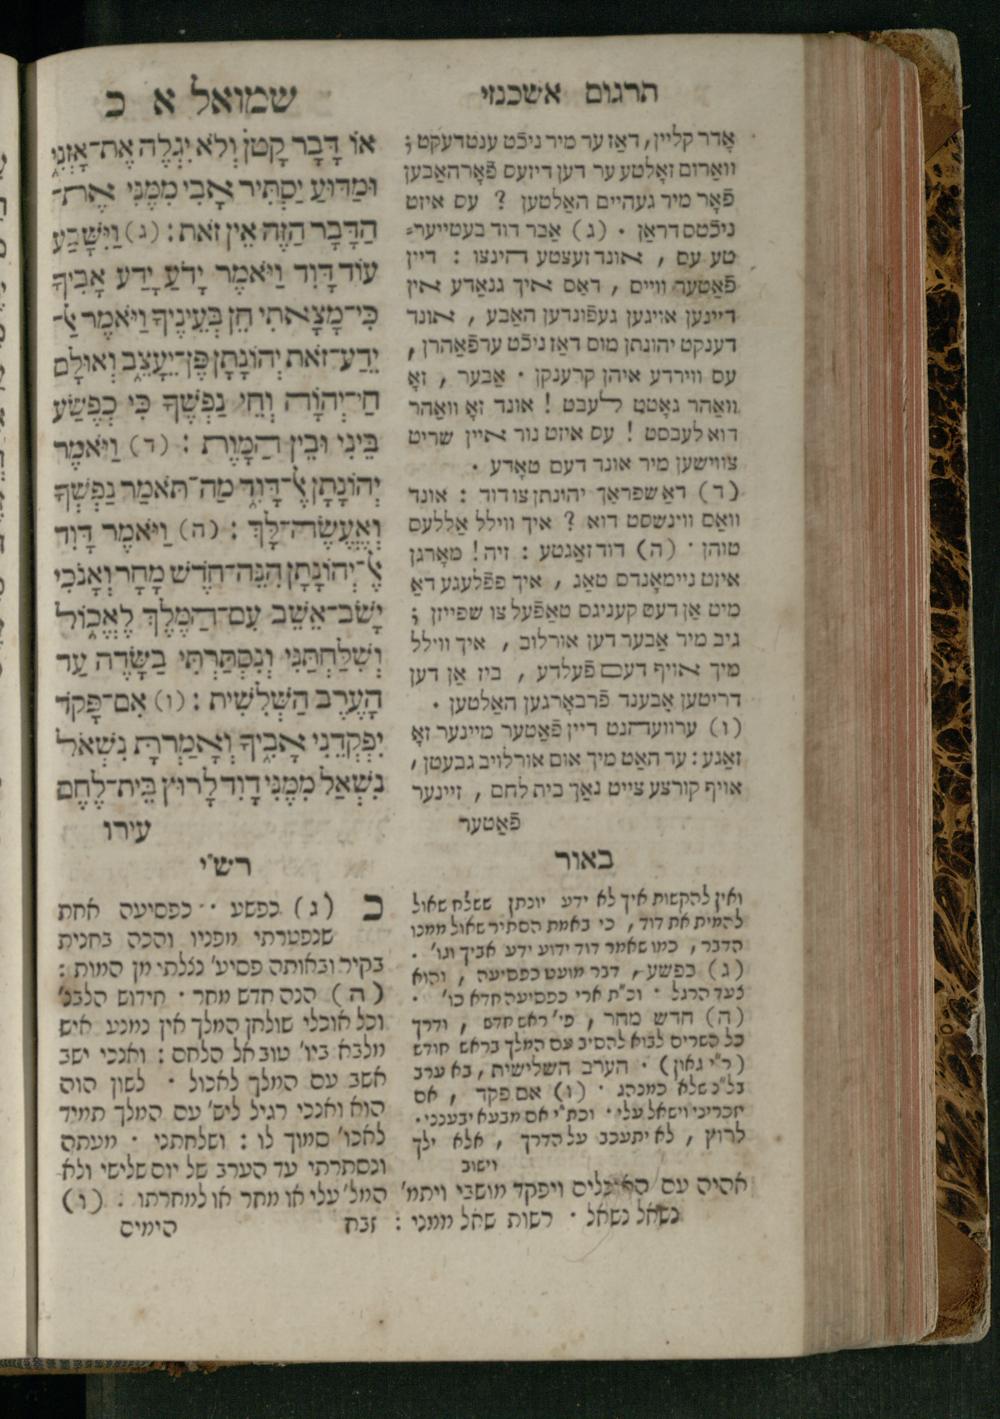 תרגום אשכנזי
אָדר קליין, דאַז ער מיר ניכֿט ענטדעקט ;
ווארום זאָלטע ער דען דיזעס פֿאָרהאַבען
פֿאָר מיר געהיים האַלטען ? עס איזט
ניכֿטס דראַן · (ג) אבר דוד בעטייער⸗
טע עס , אונד זעצטע הינצו : דיין
פֿאַטער ווייס , דאַס איך גנאַדע אין
דיינען אויגען געפֿונדען האַבע , אונד
דענקט יהונתן מוס דאַז ניכֿט ערפֿאַהרן ,
עס ווירדע איהן קרענקן · אַבער , זאָ
וואַהר גאָטט לעבט ! אונד זאָ וואַהר
דוא לעבסט ! עס איזט נור איין שריט
צווישען מיר אונד דעם טאָדע ·
(ד) דאַ שפראַך יהונתן צו דוד : אונד
וואַס ווינשסט דוא ? איך ווילל אַללעס
טוהן · (ה) דוד זאַגטע : זיה ! מאָרגן
איזט ניימאָנדס טאַג , איך פפֿלעגע דאַ
מיט אַן דעם קעניגס טאַפֿעל צו שפייזן ;
גיב מיר אַבער דען אורלוב , איך ווילל
מיך אויף דעם פֿעלדע , ביז אַן דען
דריטען אָבענד פֿרבאָרגען האַלטען ·
(ו) ערוועהנט דיין פֿאַטער מיינער זאָ
זאַגע : ער האַט מיך אום אורלויב געבעטן ,
אויף קורצע צייט נאַך בית לחם , זיינער
פֿאַטער
שמואל א כ
אוֹ דָּבָר קָטֹן וְלֹא יִגְלֶה אֶת־אָזְנִי
וּמַדּוּעַ יַסְתִּיר אָבִי מִמֶּנִּי אֶת־
הַדָּבָר הַזֶּה אֵין זֹאת : (ג) וַיִּשָּׁבַע
עוֹד דָּוִד וַיֹּאמֶר יָדֹעַ יָדַע אָבִיךָ
כִּי־מָצָאתִי חֵן בְּעֵינֶיךָ וַיֹּאמֶר אַל־
יֵדַע־זֹאת יְהוֹנָתָן פֶּן־יֵעָצֵב וְאוּלָם
חַי־יְהוָֹה וְחֵי נַפְשֶׁךָ כִּי כְפֶשַׂע
בֵּינִי וּבֵין הַמָּוֶת : (ד) וַיֹּאמֶר
יְהוֹנָתָן אֶל־דָּוִד מַה־תֹּאמַר נַפְשְׁךָ
וְאֶעֱשֶׂה־לָּךְ : (ה) וַיֹּאמֶר דָּוִד
אֶל־יְהוֹנָתָן הִנֵּה־חֹדֶשׁ מָחָר וְאָנֹכִי
יָשֹׁב־אֵשֵׁב עִם־הַמֶּלֶךְ לֶאֱכוֹל
וְשִׁלַּחְתַּנִי וְנִסְתַּרְתִּי בַשָּׂדֶה עַד
הָעֶרֶב הַשְּׁלִשִׁית : (ו) אִם־פָּקֹד
יִפְקְדֵנִי אָבִיךָ וְאָמַרְתָּ נִשְׁאֹל
נִשְׁאַל מִמֶּנִּי דָוִד לָרוּץ בֵּית־לֶחֶם
עירו
באור
ואין להקשות איך לא ידע יונתן ששלח שאול
להמית את דוד , כי באמת הסתיר שאול ממנו
הדבר , כמו שאמר דוד ידוע ידע אביך וגו' .
(ג) כפשע , דבר מועט כפסיעה , והוא
צעד הרגל · וכ"ת ארי כפסיעה חדא כו' ·
(ה) חדש מחר , פי' ראש חדש , ודרך
כל השרים לבוא להסיב עם המלך בראש חודש
(ר"י גאון) · הערב השלישית , בא ערב
בל"נ שלא כמנהג · (ו) אם פקד , אם
יזכריני וישאל עלי · וכת"י אם מבעא יבעינני ·
לרוץ , לא יתעכב על הדרך , אלא ילך
וישוב
רש"י
כ (ג) כפשע · כפסיעה אחת
שנפטרתי מפניו והכה בחנית
בקיר ובאותה פסיע' נצלתי מן המות :
(ה) הנה חדש מחר · חידוש הלבנ'
וכל אוכלי שולחן המלך אין נמנע איש
מלבא ביו' טוב אל הלחם : ואנכי ישב
אשב עם המלך לאכול · לשון הוה
הוא ואנכי רגיל ליש' עם המלך תמיד
לאכו' סמוך לו : ושלחתני · מעתה
ונסתרתי עד הערב של יום שלישי ולא
אהיה עם האוכלים ויפקד מושבי ויתמ' המל' עלי או מחר או למחרתו . (ו)
נשאל נשאל · רשות שאל ממני : זבח
הימים